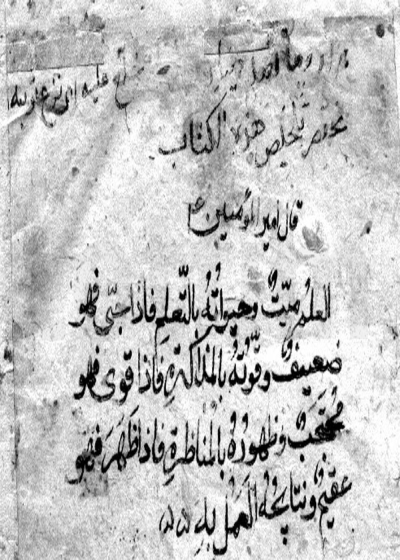 مختصر تلخيص هذه الكتاب
قال امير المؤمنين ع
العلم ميّتٌ وحيوتُهُ بالتّعلم فاذا حيّى فهو
ضعيفٌ وقوّتُهُ بالمذاكرةِ فاذا قوى فهو
محتجبٌ وظهورُهُ بالمناظرةِ فاذا ظَهَرَ فهو
عقيمٌ ونتائجُهُ العمل به